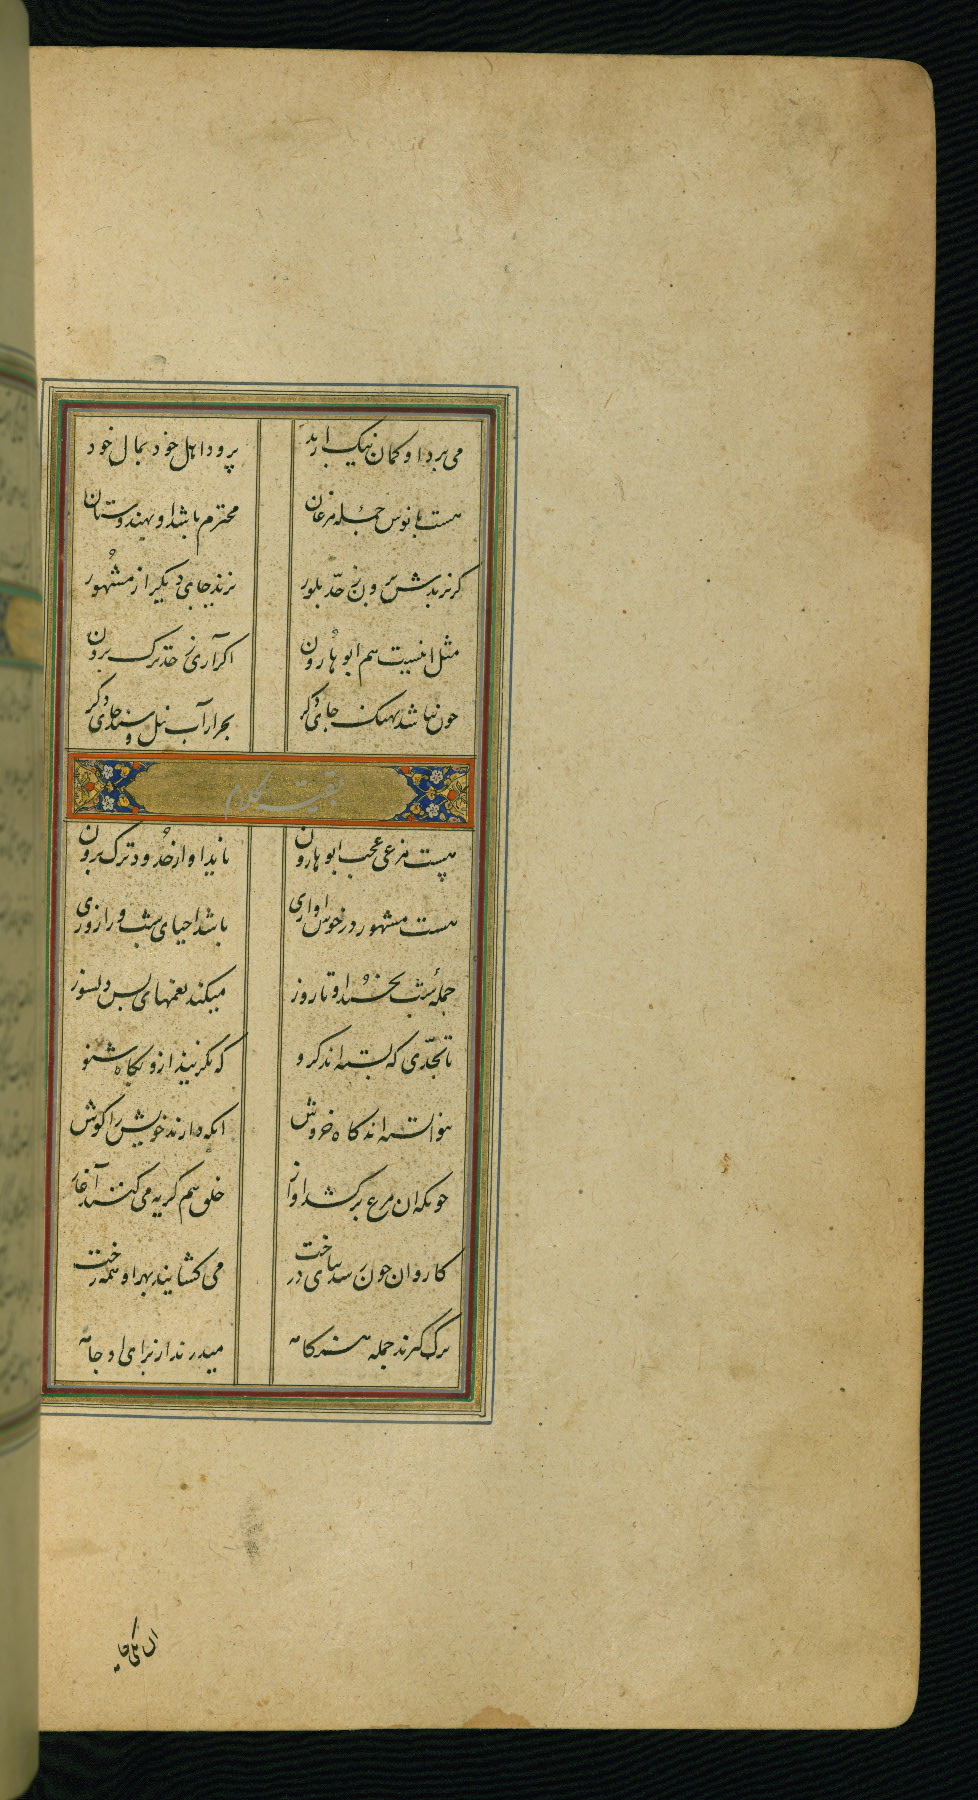 می برد او کمان نیک ابد پرود اهل خود بمال خود
هست مانوس جمله مرغان محترم باشد او بهندوستان
کر نزندش سر و بن زحد بلور نزند جای دیگر از مشهور
مثل انسیت هم ابو هارون اکر آری ز حد ترک برون
چون نباشد بهیک جای دکر بجز از آب نیل و سند جای دکر
بقیت کلام
هست مرغی عجب ابو هارون ناید او از حدود ترک برون
هست مشهور در خوش اوازی باشد احیای شب ورا روزی
جملهٔ شب نخسبد او تا روز میکند نغمهای بس دلسوز
تا بحدی که بسته اند کرو که نکرنید ازو بکاه شنو
نتوانسته اند کاه خروش انکه دارند خویش را کوش
چونکه ان مرغ برکشد اواز خلق هم کریه می کنند آغاز
کاروان چون رسد بپای درخت می کشایند بهر او همه رخت
برک کیرند جمله هنکامه میدرند از برای او جامه
ان یکی جامه